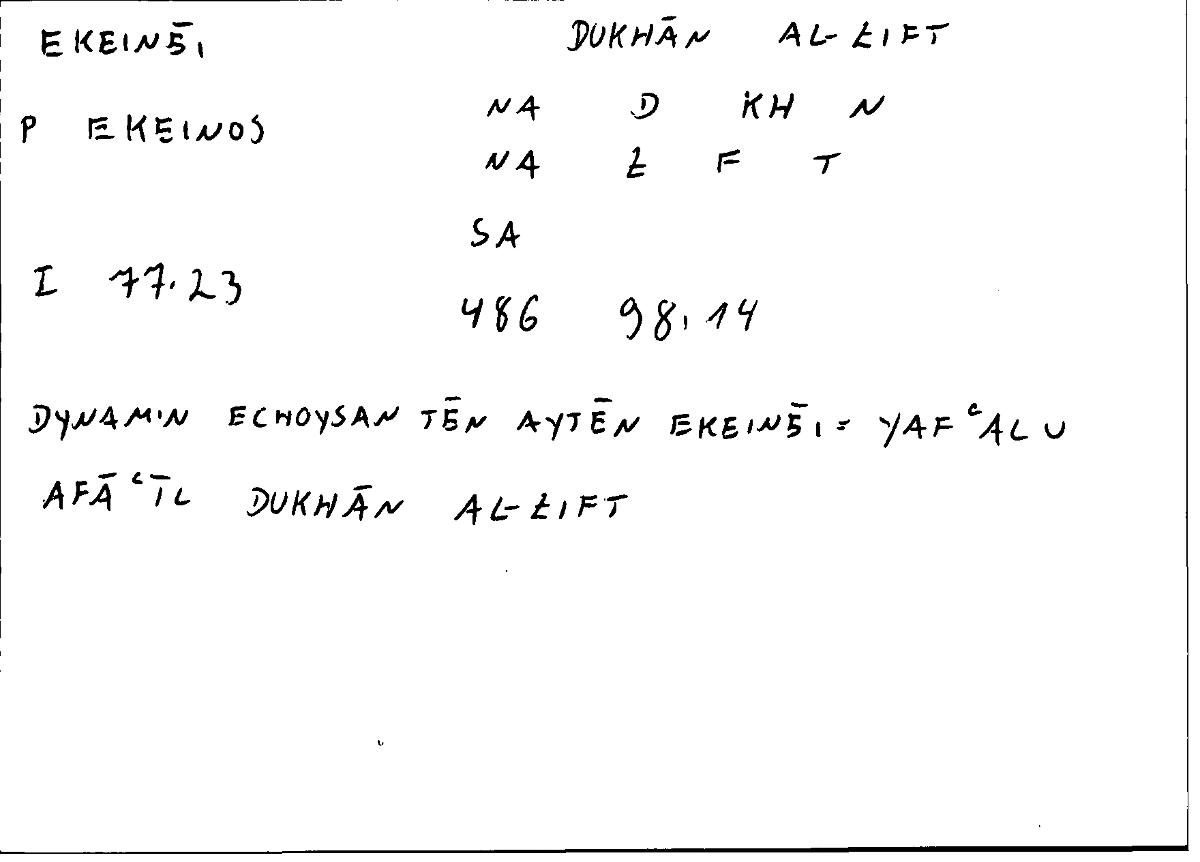 EKEINĒI DUKHĀN AL-ŁIFT
P EKEINOS NA D KH N
NA Ł F T
SA
I 77.23 486 98,14
DYNAMIN ECHOYSAN TĒN AYTĒN EKEINĒI = YAFᶜALU
AFĀᶜĪL DUKHĀN AL-ŁIFT